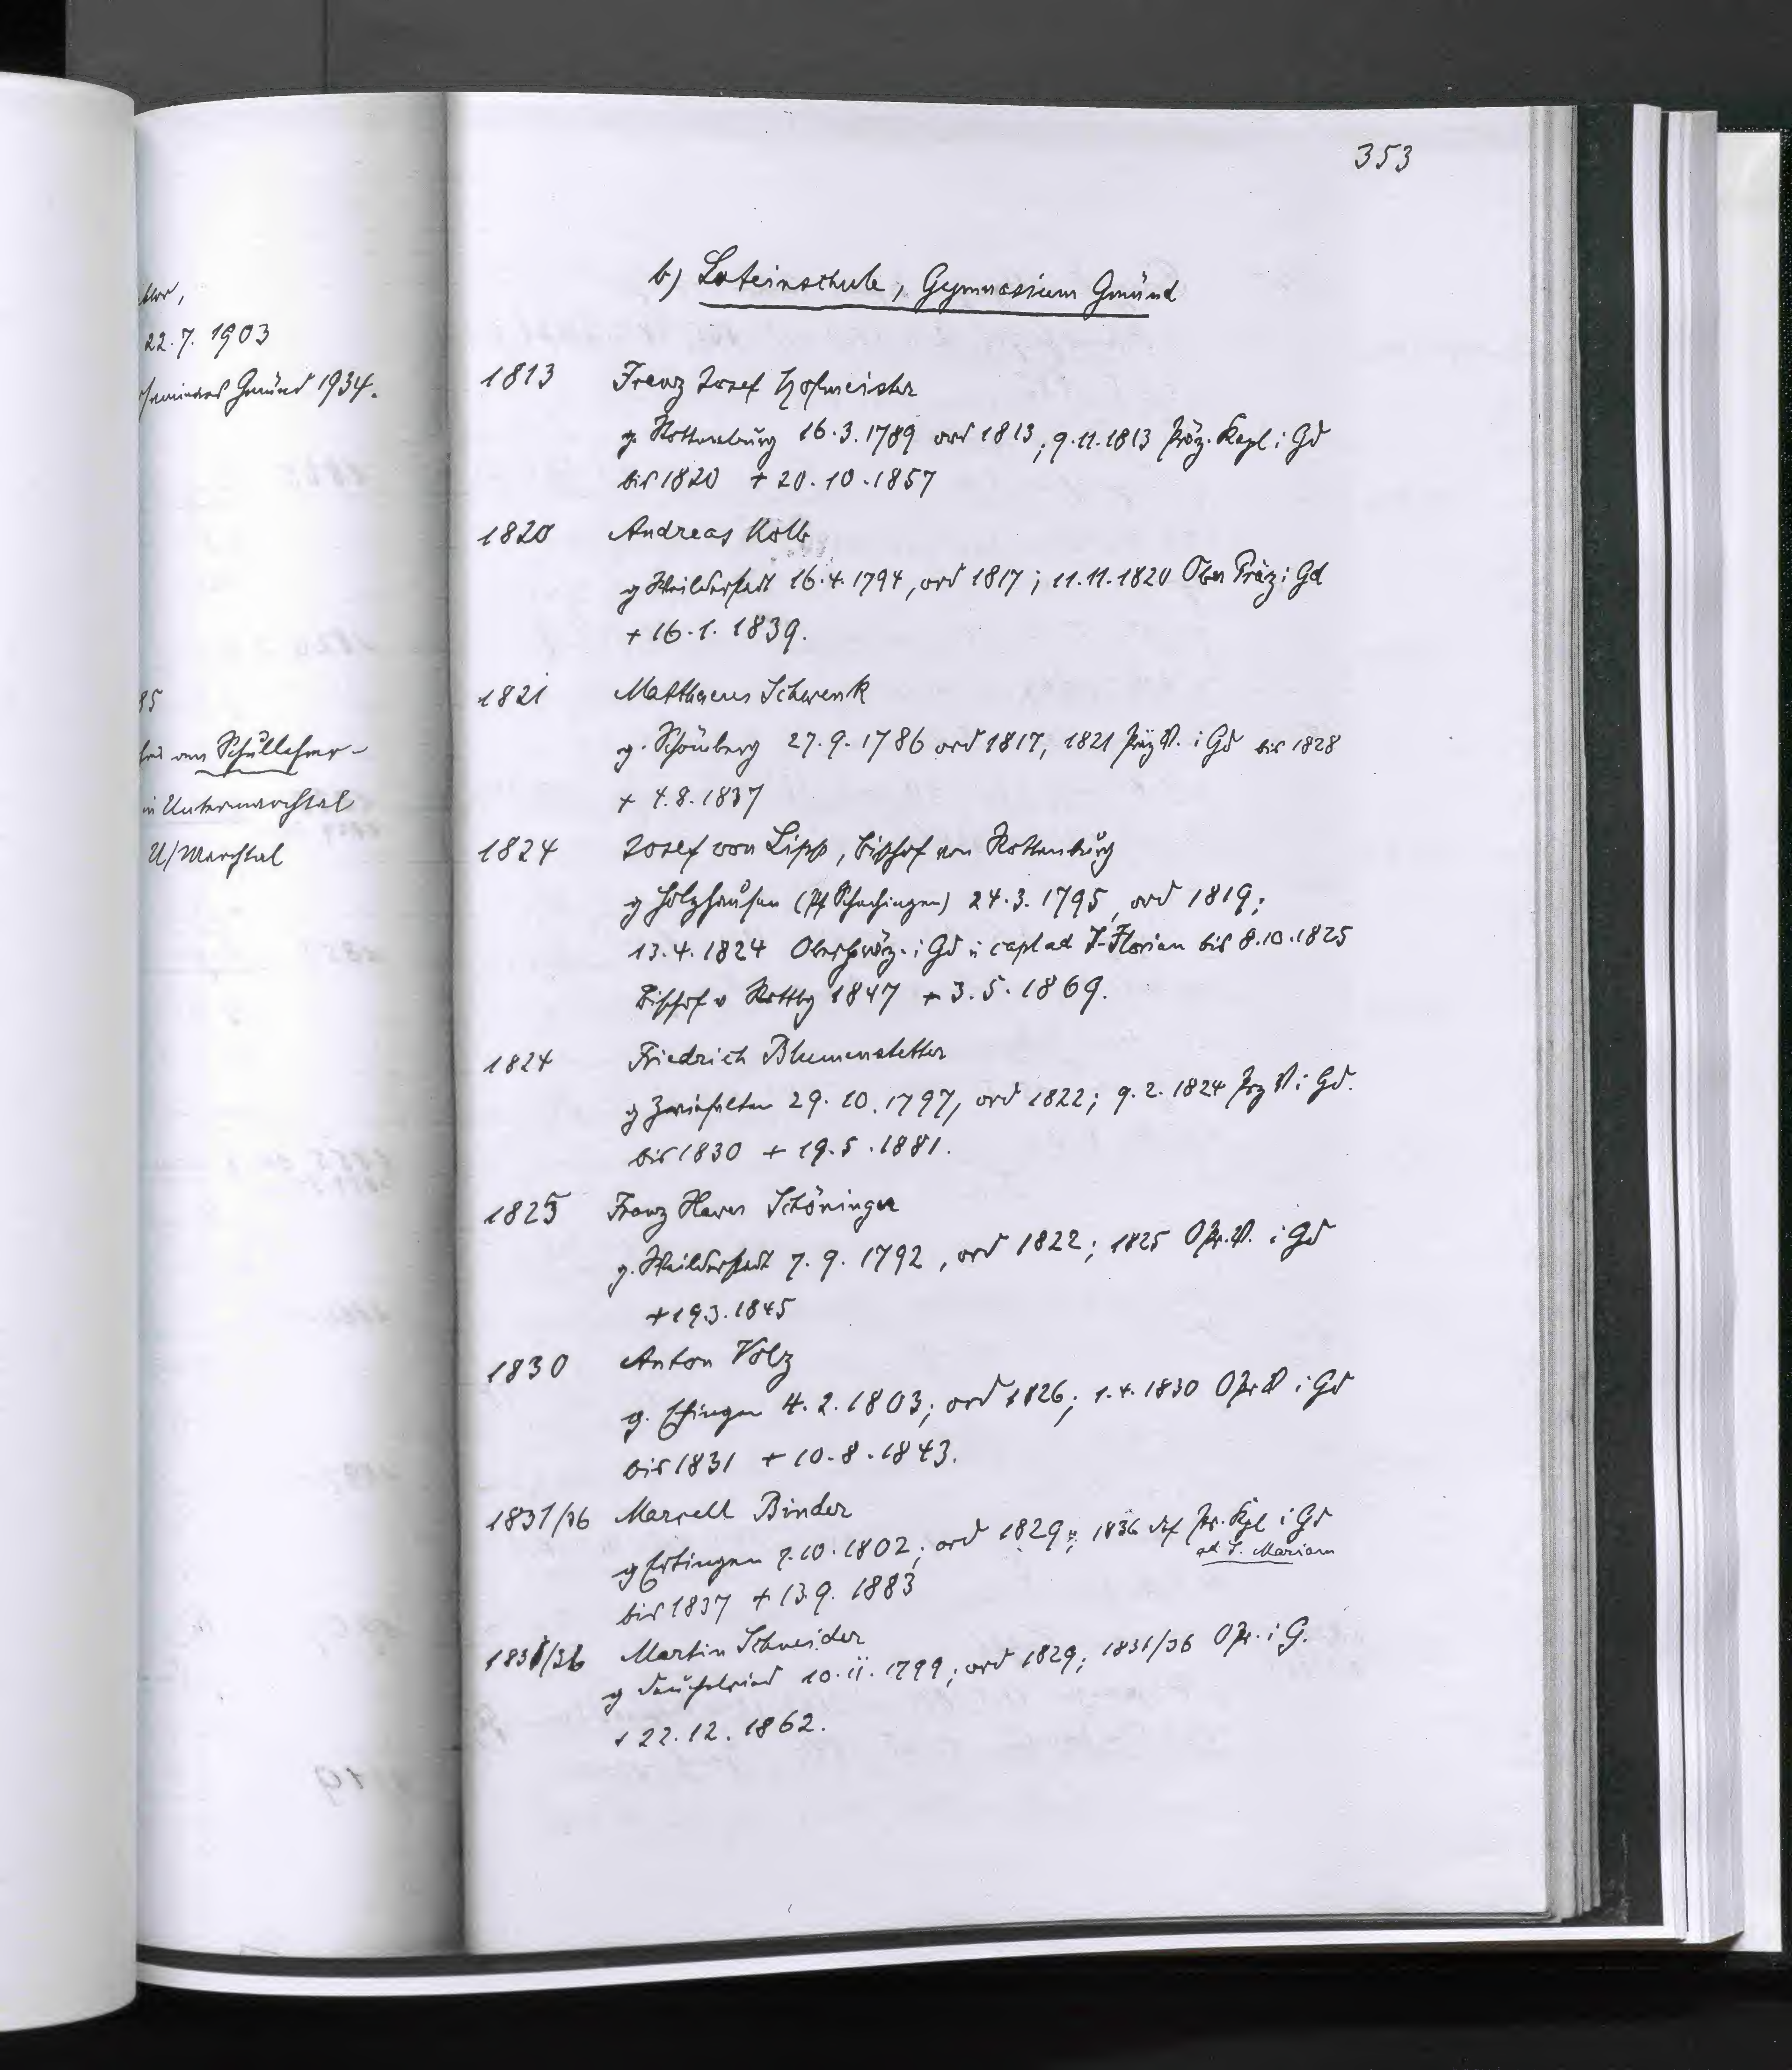 22.7.1903
Gmünd 1934.
85
Schullehrer-
in Untermarchtal
U/Marchtal
353
b) Lateinschule, Gymnasium Gmünd
1813 Franz Josef Hofmeister
g. Rottenburg 16.3.1789 ord 1813; 9.11.1813 Präz. Kapl i Gd
bis 1820 + 20.10.1857
1820 Andreas Kolb
g Weilderstadt 16.4.1794, ord 1817; 11.11.1820 Ober Präz i Gd
+ 16.1.1839.
1821 Matthaeus Schwenk
g. Schömberg 27.9.1786 ord 1817, 1821 Präz V. i Gd bis 1828
+ 4.8.1837
1824 Josef von Lipp, Bischof von Rottenburg
g Holzhausen (Pf Schechingen) 24.3.1795, ord 1819;
13.4.1824 Oberpräz. i Gd u capl ad S-Florian bis 8.10.1825
Bischof v Rottbg 1847 + 3.5.1869.
1824 Friedrich Blumenstetter
g Zwiefalten 29.10.1797, ord 1822; 9.2.1824 Prz V i Gd.
bis 1830 + 19.5.1881.
1825 Franz Xaver Schöninger
g. Weilderstadt 7.9.1792, ord 1822; 1825 OPr.V. i Gd
+ 19.3.1845
1830 Anton Volz
g. Ehingen 4.2.1803; ord 1826; 1.4.1830 OPr V i Gd
bis 1831 + 10.8.1843.
1831/36 Marcell Binder
g Ertingen 7.10.1802; ord 1829; 1836 def Pr. Kpl i Gd
ad S. Mariam
bis 1837 + 13.9.1883
1831/36 Martin Schneider
g 10.11.1799; ord 1829; 1831/36 OPr. i G.
+ 22.12.1862.